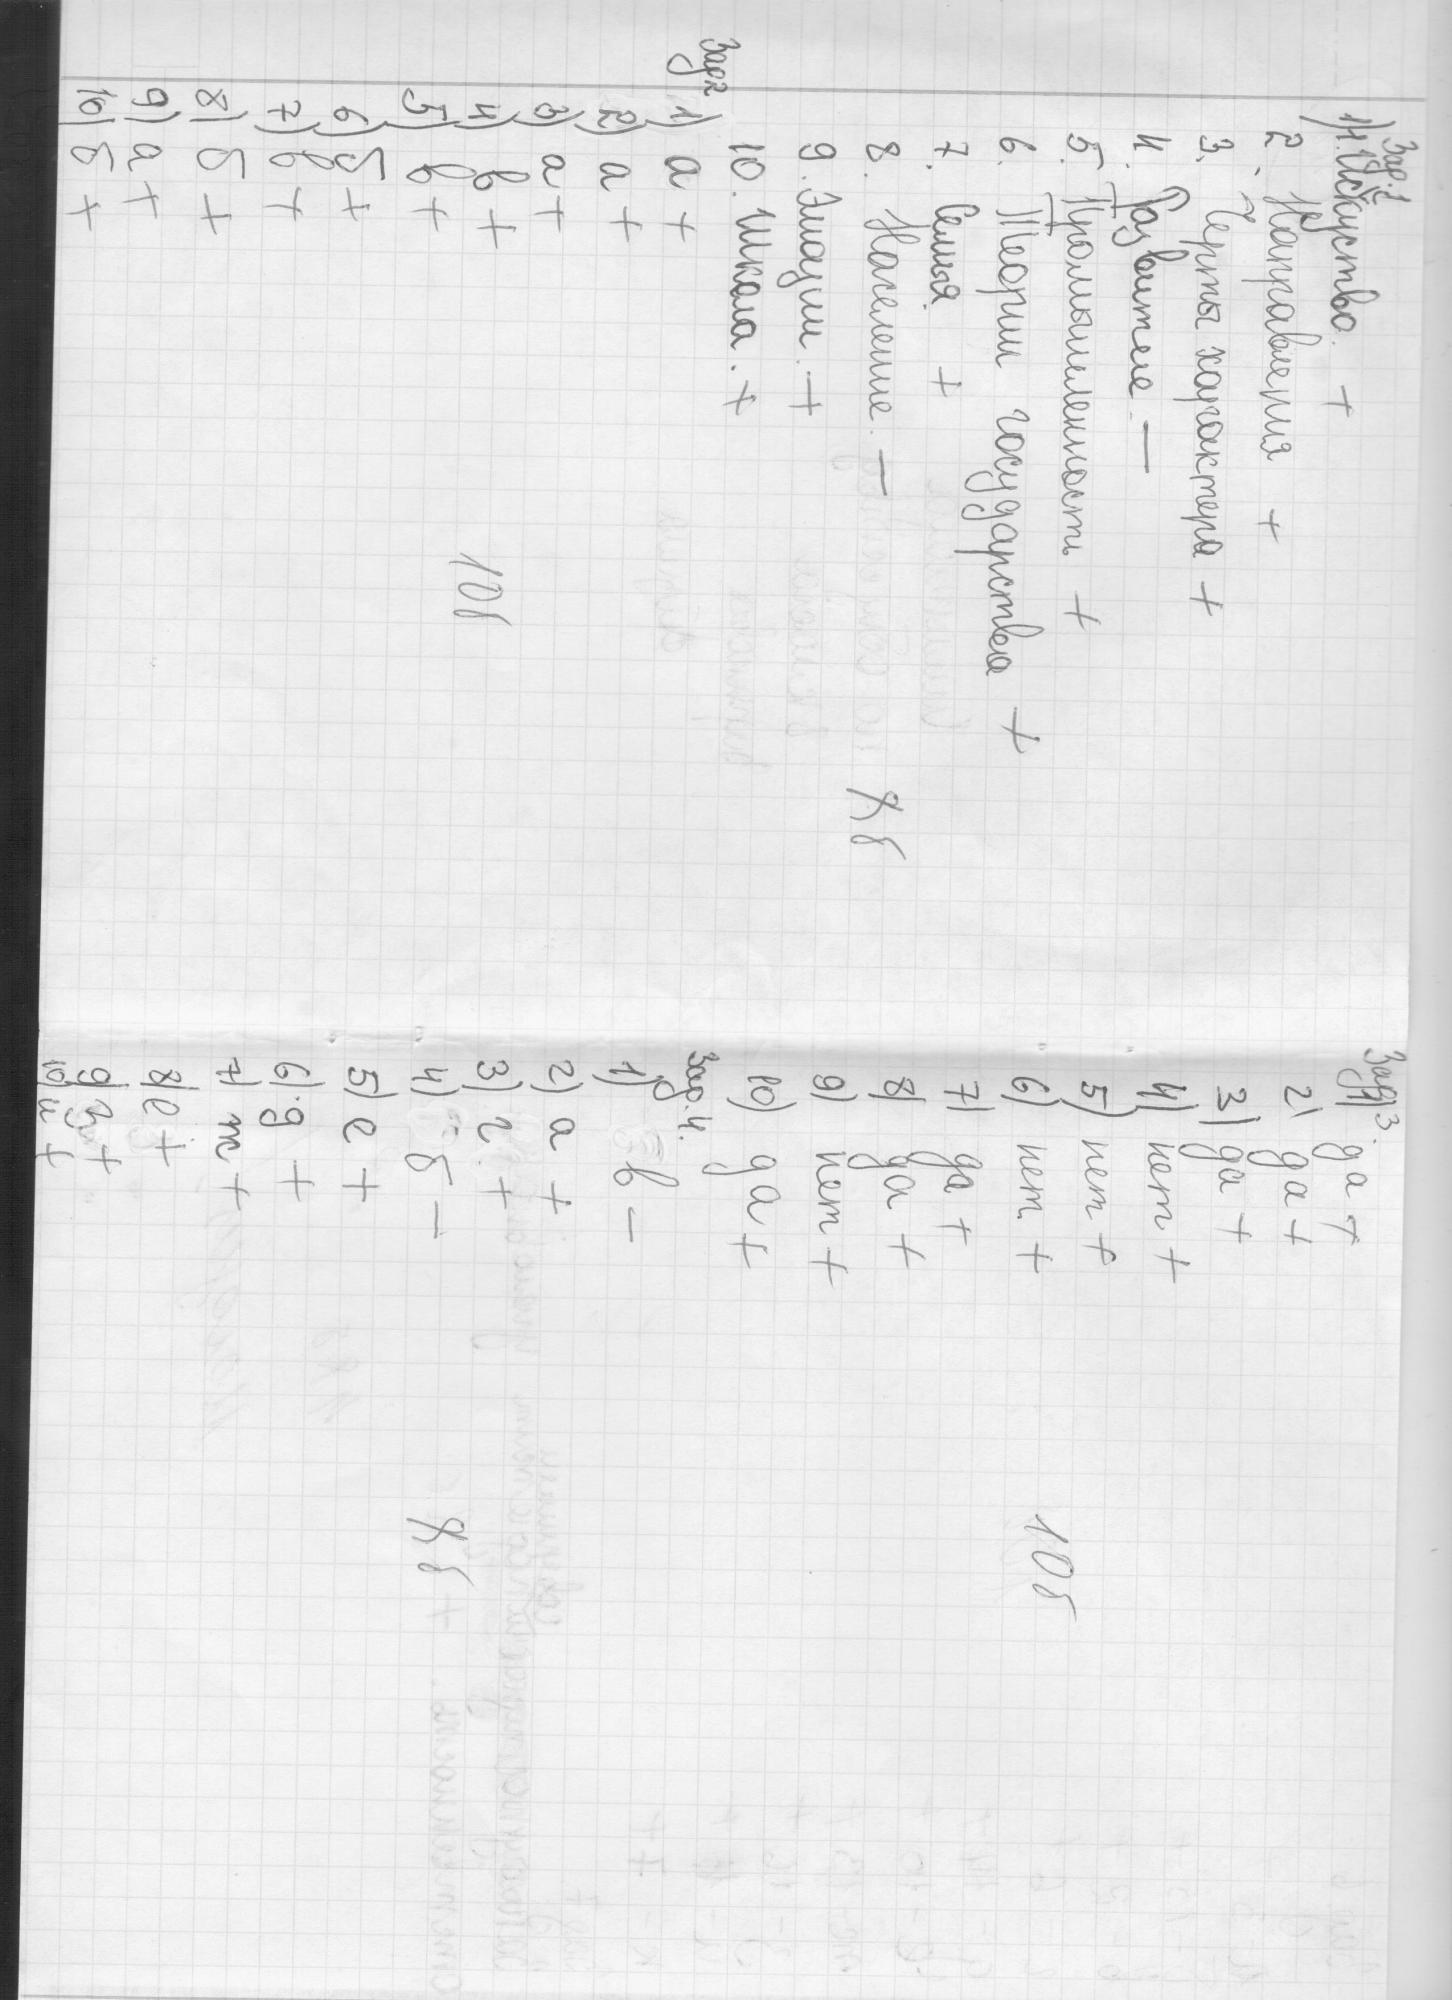 Зад. 1
1) 1. Искуство. +
2. Направления +
3. Черты характера +
4. Развитие. —
5. Промышленность +
6. Теории государства +
7. Семья. +
8. Население. —
9. Эмоции. +
10. Школа. +
8б
Зад 2
1) а +
2) а +
3) а +
4) в +
5) в +
6) б +
7) в +
8) б +
9) а +
10) б +
10б
Зад 3.
1) да +
2) да +
3) да +
4) нет +
5) нет +
6) нет. +
7) да +
8) да +
9) нет +
10) да +
10б
Зад. 4.
1) в —
2) а +
3) г. +
4) б —
5) е +
6) д +
7) т +
8) е +
9) +
10) и +
8б